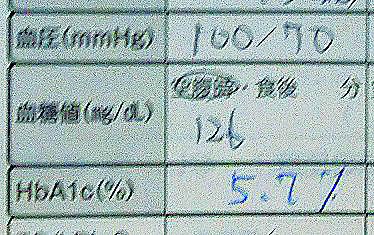 血圧(mmHg) 100/70
血糖値(mg/dL) ・食後 分
126
HbA1c(%) 5.7%